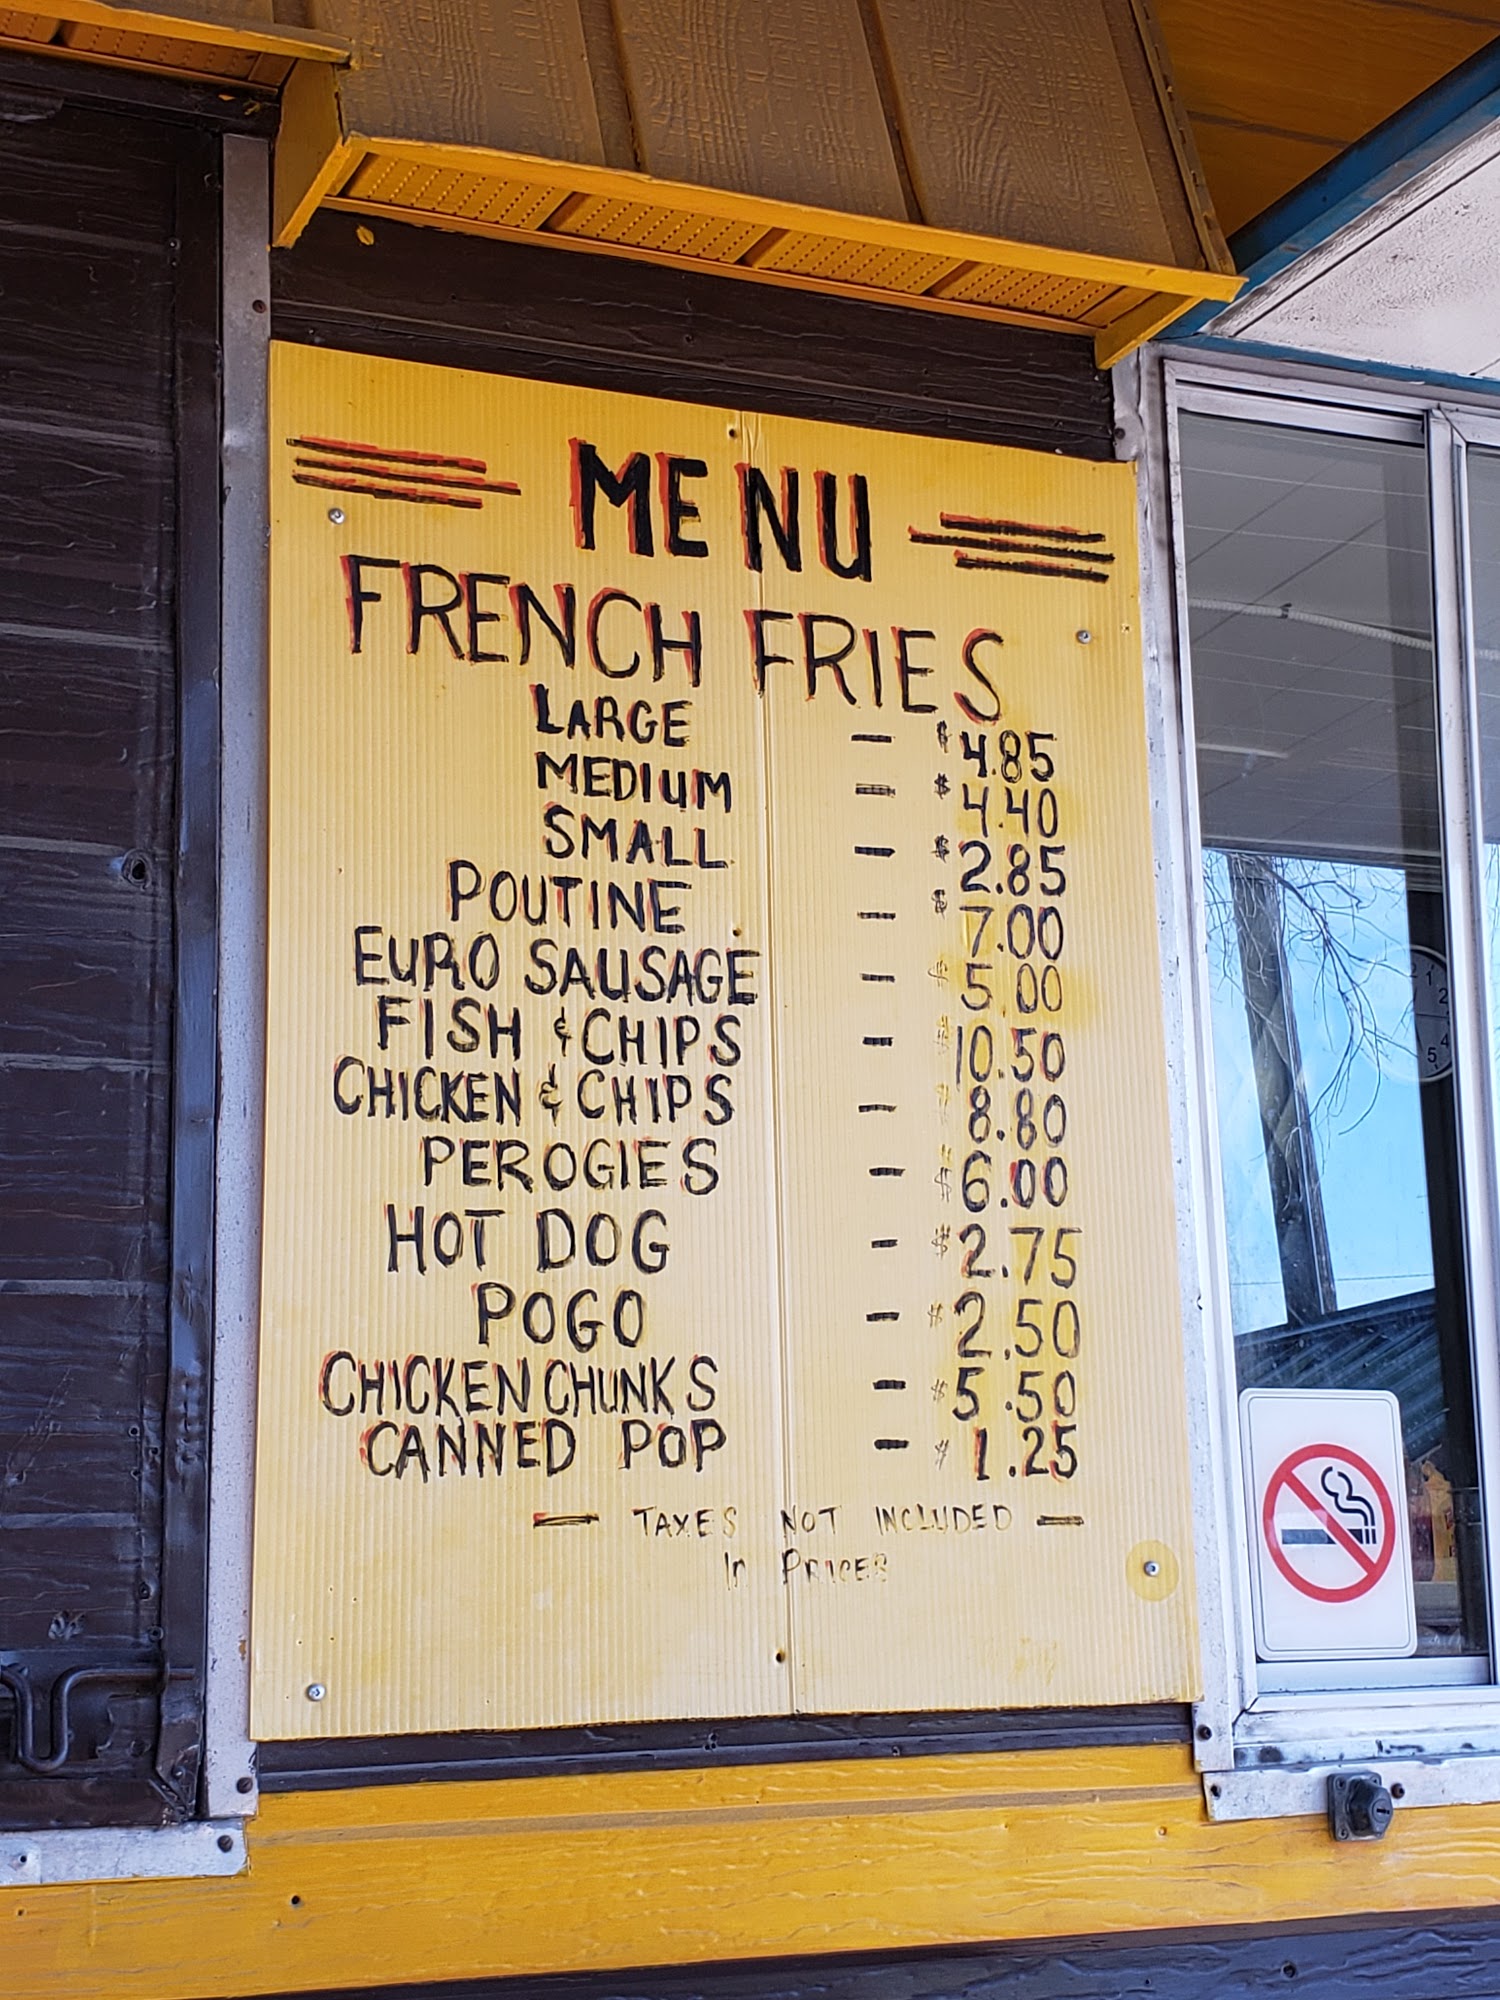 MENU
FRENCH FRIES
LARGE - $4.85
MEDIUM - $4.40
SMALL - $2.85
POUTINE - $7.00
EURO SAUSAGE - $5.00
FISH & CHIPS - $10.50
CHICKEN & CHIPS - $8.80
PEROGIES - $6.00
HOT DOG - $2.75
POGO - $2.50
CHICKEN CHUNKS - $5.50
CANNED POP - $1.25
— TAXES NOT INCLUDED —
In PRICES
1
2
4
5